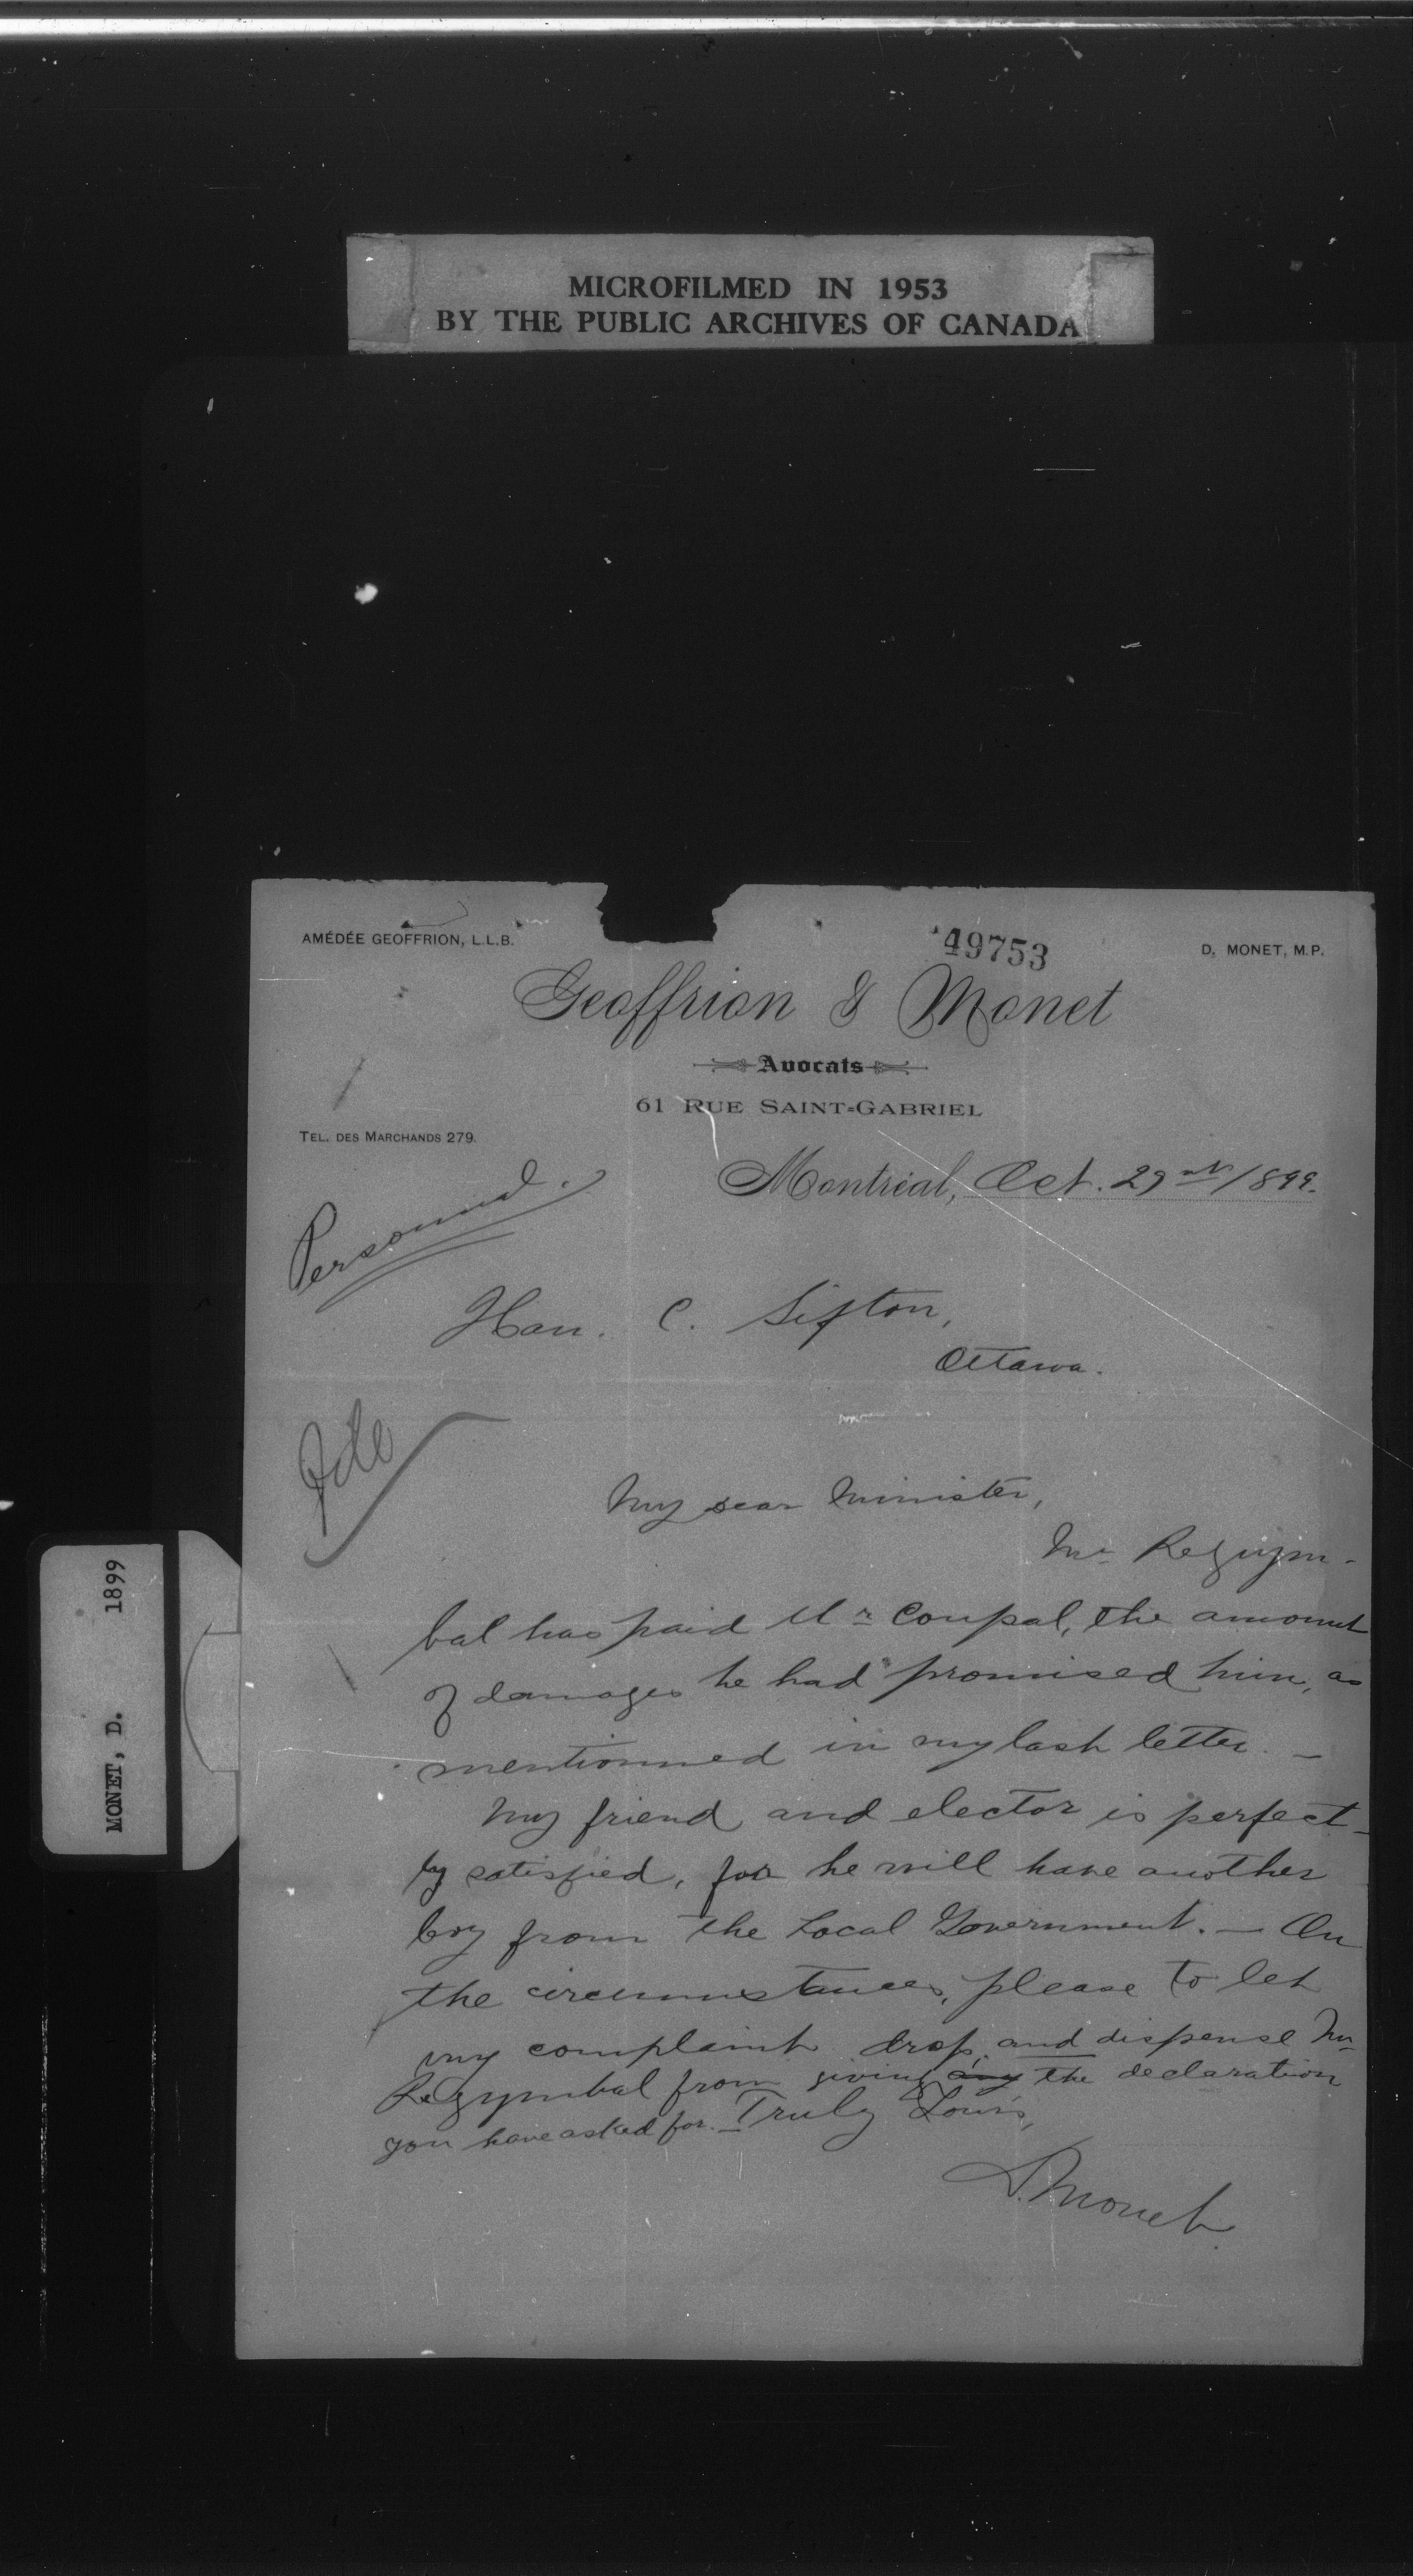 MICROFILMED IN 1953
BY THE PUBLIC ARCHIVES OF CANADA
AMÉDÉE GEOFFRION, L.L.B.
49753
D. MONET, M.P.
Geoffrion & Monet
Avocats
61 RUE SAINT-GABRIEL
TEL. DES MARCHANDS 279.
Montréal, Oct. 29 1899.
Personnal.
Hon. C. Sifton,
Ottawa.
My dear Minister,
Mr Rezuym-
bal has paid Mr Coupal, the amount
of damages he had promised him, as
mentionned in my last letter. —
My friend and elector is perfect-
ly satisfied, for he will have another
boy from the Local Government. — On
the circumstances, please to let
my complaint drop, and dispense Mr
Rezymbal from giving any the declaration
you have asked for. — Truly Yours,
D. Monet
MONET, D. 1899